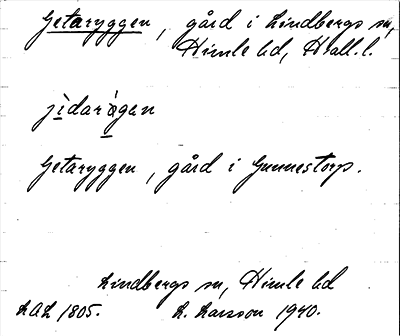 Getaryggen, gård i Lindbergs sn,
Himle hd, Hall. l.
jìdarøgan
Getaryggen, gård i Gunnestorp.
Lindbergs sn, Himle hd
LAL 1805. L. Larsson 1940.